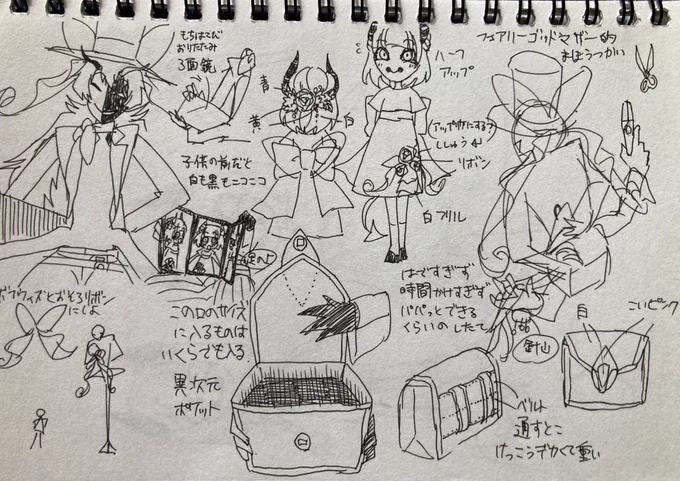 もちはこび
おりたたみ
3面鏡
青
黄
白
ハーフ
アップ
フェアリーゴッドマザー的
まほうつかい
子供の前だと
白も黒もニコニコ
(アップ
ししゅう
リボン
白フリル
はですぎず
時間かけすぎず
パパっとできる
くらいのしたて
おそろリボン
にしよ
この口のサイズ
に入るものは
いくらでも入る
異次元
ポケット
針山
白
こいピンク
ベルト
通すとこ
けっこうデカくて重い